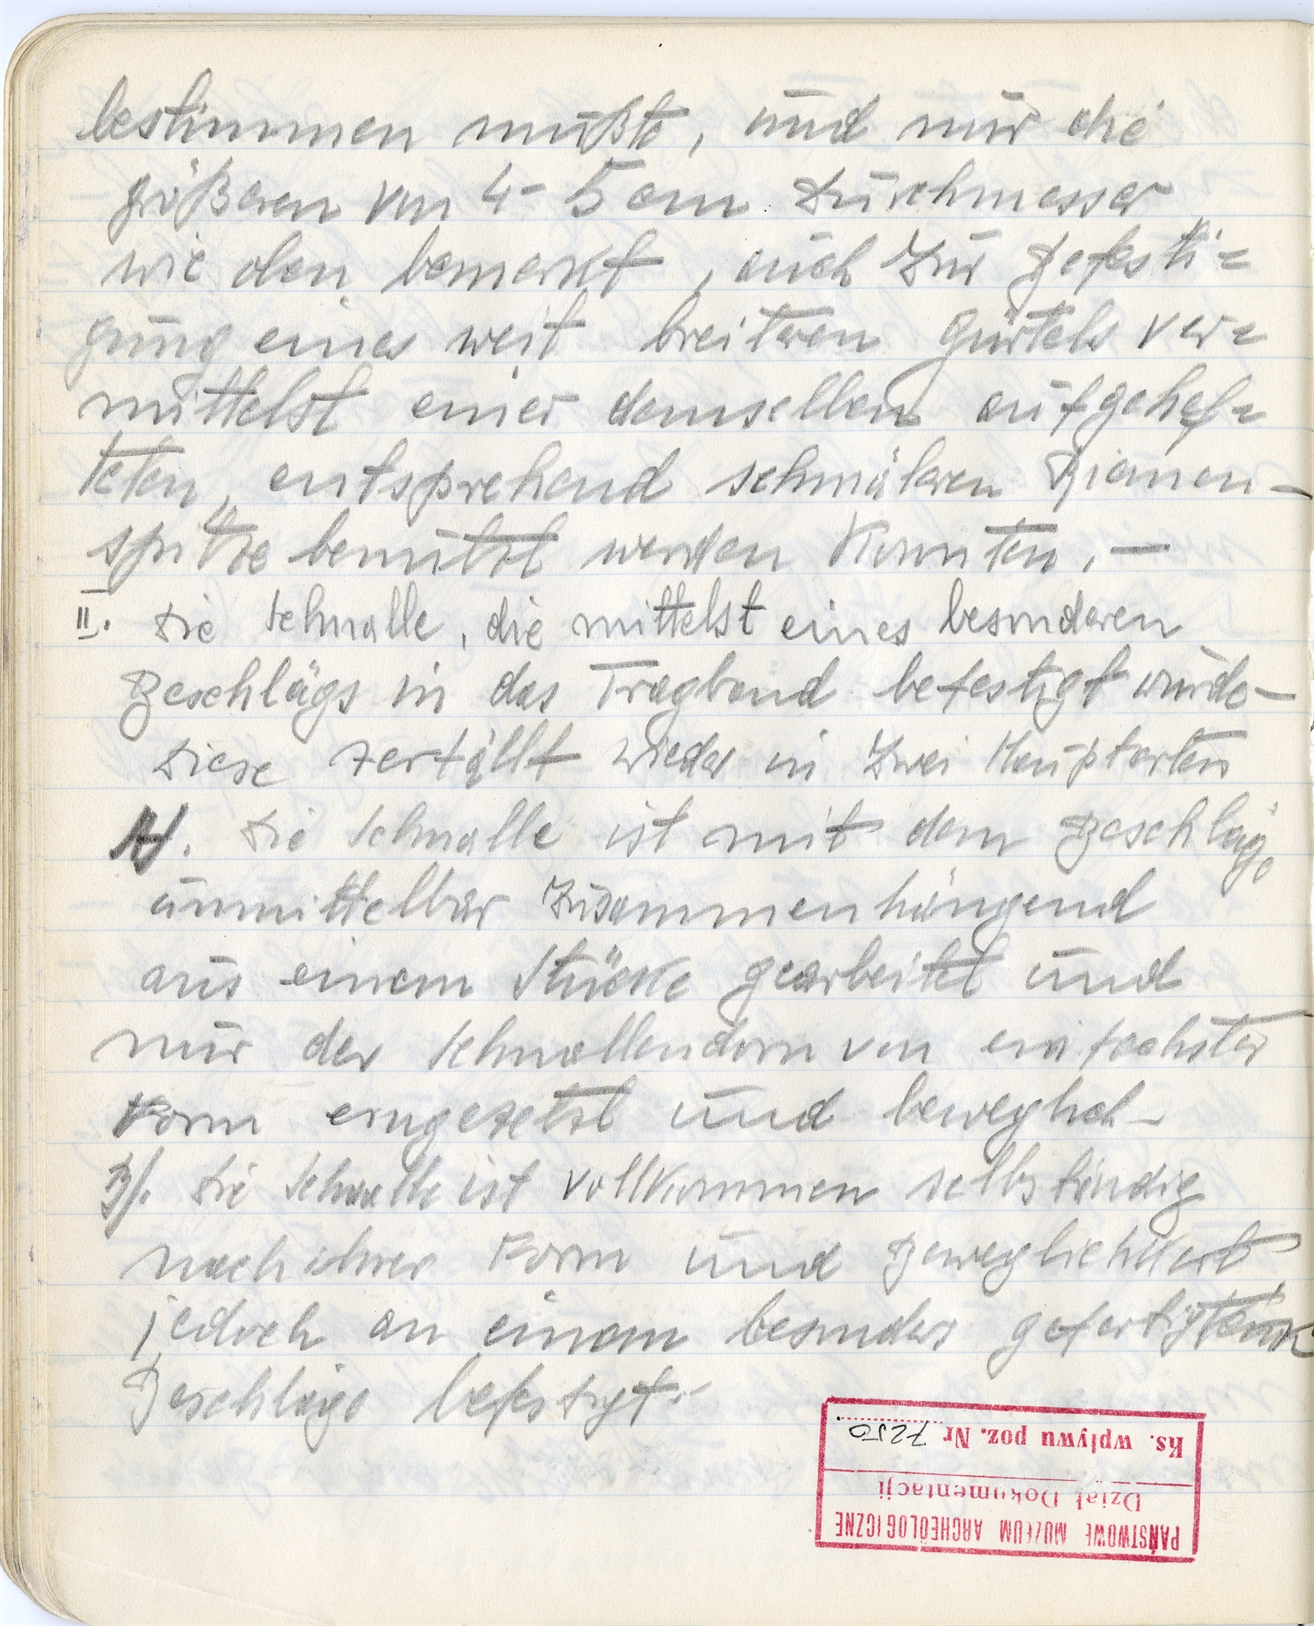 bestimmen mußte, und nur die
größeren von 4-5 cm Durchmesser
wie oben bemerkt, auch zur Befesti=
gung eines weit breiteren Gürtels ver=
mittelst einer demselben aufgehef=
teten, entsprehend schmäleren Riemen-
spitze benützt werden konnten. —
II. Die Schnalle, die mittelst eines besonderen
Beschlägs in das Tragband befestigt wurde-
Diese zerfällt wieder in zwei Hauptarten
A/. Die Schnalle ist mit dem Beschläge
unmittelbar zusammenhängend
aus einem Stücke gearbeitet und
nur der Schnallendorn von einfachster
Form eingesetzt und beweglich-
B/. Die Schnalle ist vollkommen selbständig
nach ihrer Form und Beweglichkeit
jedoch an einem besonders gefertigten
Beschläge befestigt.-
PAŃSTWOWE MUZEUM ARCHEOLOGICZNE
Dział Dokumentacji
Ks. wpływu poz. Nr 7250